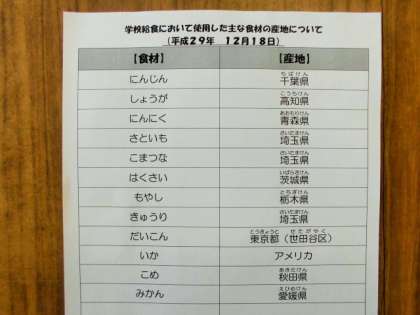 学校給食において使用した主な食材の産地について
（平成２９年　１２月１８日）
【食材】　【産地】
にんじん　千葉県
しょうが　高知県
にんにく　青森県
さといも　埼玉県
こまつな　埼玉県
はくさい　茨城県
もやし　栃木県
きゅうり　埼玉県
だいこん　東京都（世田谷区）
いか　アメリカ
こめ　秋田県
みかん　愛媛県